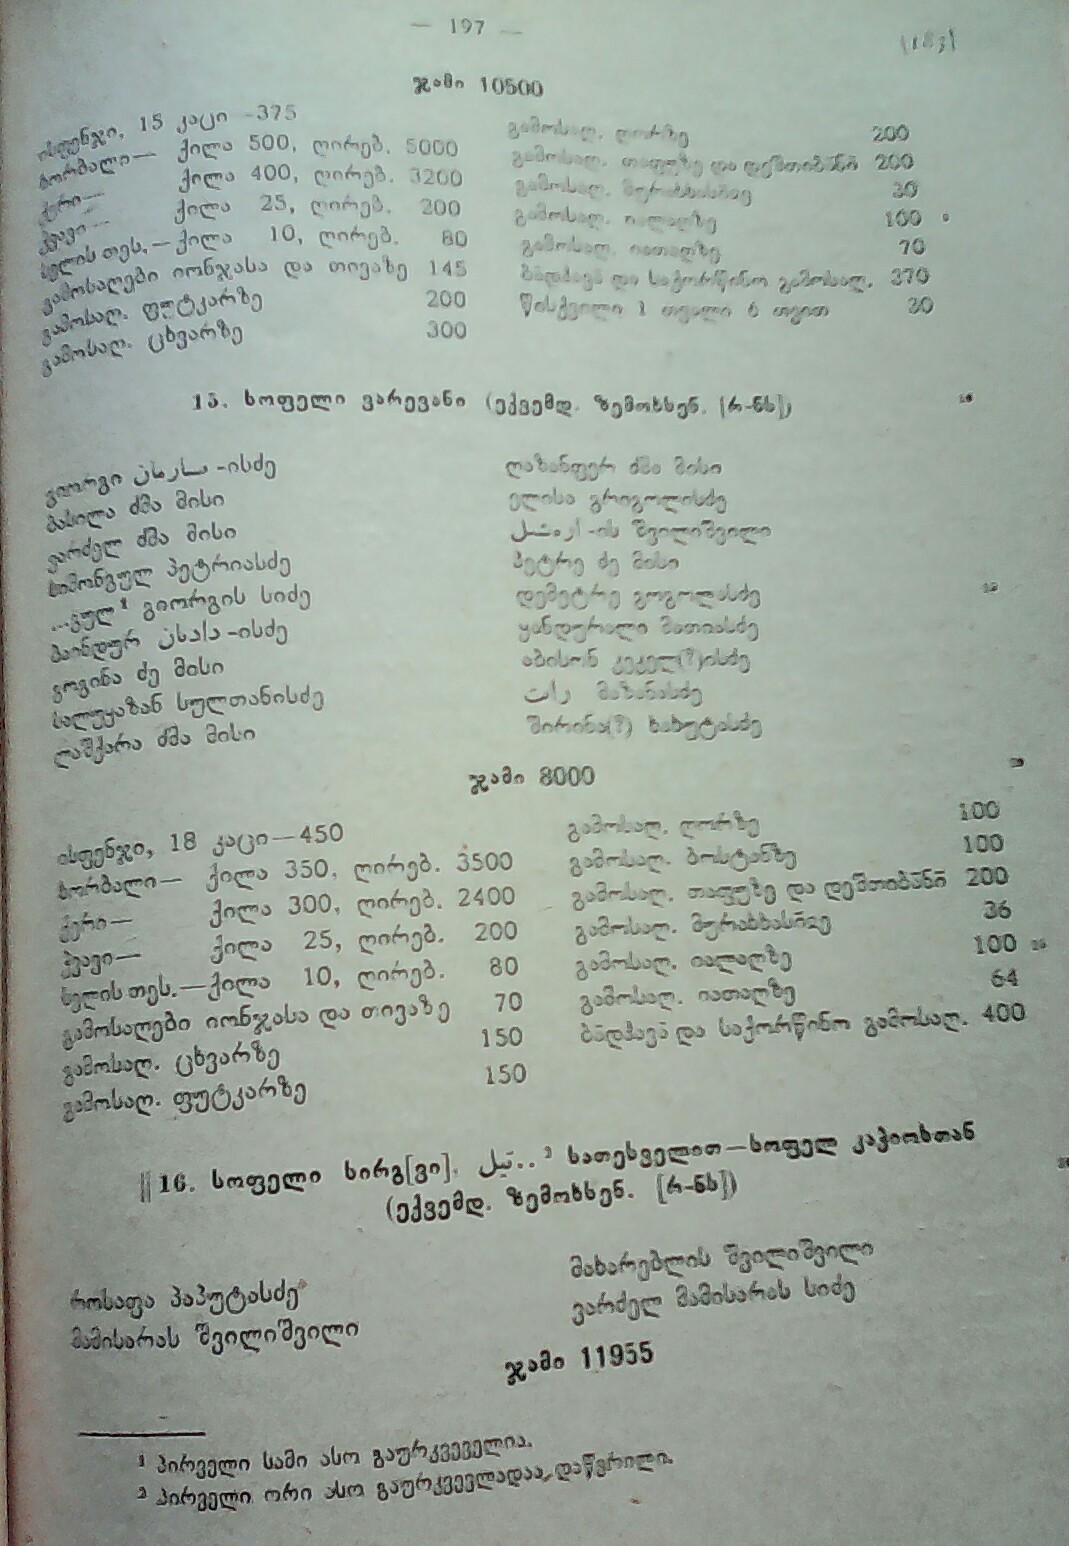 — 197 —
[183]
ჯამი 10500
ისფენჯი, 15 კაცი -375
ხორბალი— ქილა 500, ღირებ. 5000
ქერი— ქილა 400, ღირებ. 3200
ჭვავი— ქილა 25, ღირებ. 200
სელის თეს.— ქილა 10, ღირებ. 80
გამოსაღები იონჯასა და თივაზე 145
გამოსაღ. ფუტკარზე 200
გამოსაღ. ცხვარზე 300
გამოსაღ. ღორზე 200
გამოსაღ. თაფუზე და დეშთიბანი 200
გამოსაღ. 30
გამოსაღ. იალაღზე 100
გამოსაღ. იათაღზე 70
ბადჰავა და საქორწინო გამოსაღ. 370
წისქვილი 1 თვალი 6 თვით 30
15. სოფელი ვარევანი (ექვემდ. ზემოხსენ. [რ-ნს])
გიორგი -ისძე
ბასილა ძმა მისი
ვარძელ ძმა მისი
სიმონგულ პეტრიასძე
...გულ¹ გიორგის სიძე
ბაინდურ -ისძე
გოგინა ძე მისი
ბალუყაზან სულთანისძე
ლაშქარა ძმა მისი
ღაზანფერ ძმა მისი
ელისა გრიგოლისძე
-ის შვილიშვილი
პეტრე ძე მისი
დემეტრე გოგოლასძე
ყანდურალი მათიასძე
აბისონ კეკელ(?)ისძე
მაზანასძე
შირინა(?) ხახუტასძე
ჯამი 8000
ისფენჯი, 18 კაცი—450
ხორბალი— ქილა 350, ღირებ. 3500
ქერი— ქილა 300, ღირებ. 2400
ჭვავი— ქილა 25, ღირებ. 200
სელის თეს.—ქილა 10, ღირებ. 80
გამოსაღები იონჯასა და თივაზე 70
გამოსაღ. ცხვარზე 150
გამოსაღ. ფუტკარზე 150
გამოსაღ. ღორზე 100
გამოსაღ. ბოსტანზე 100
გამოსაღ. თაფუზე და დეშთიბანი 200
გამოსაღ. 36
გამოსაღ. იალაღზე 100
გამოსაღ. იათაღზე 64
ბადჰავა და საქორწინო გამოსაღ. 400
‖ 16. სოფელი სირგ[ვი], ..² სათესველით—სოფელ კაჭიოხთან
(ექვემდ. ზემოხსენ. [რ-ნს])
როსაფა პაპუტასძე
მამისარას შვილიშვილი
მახარებლის შვილიშვილი
ვარძელ მამისარას სიძე
ჯამი 11955
¹ პირველი სამი ასო გაურკვეველია.
² პირველი ორი ასო გაურკვევლადაა დაწერილი.